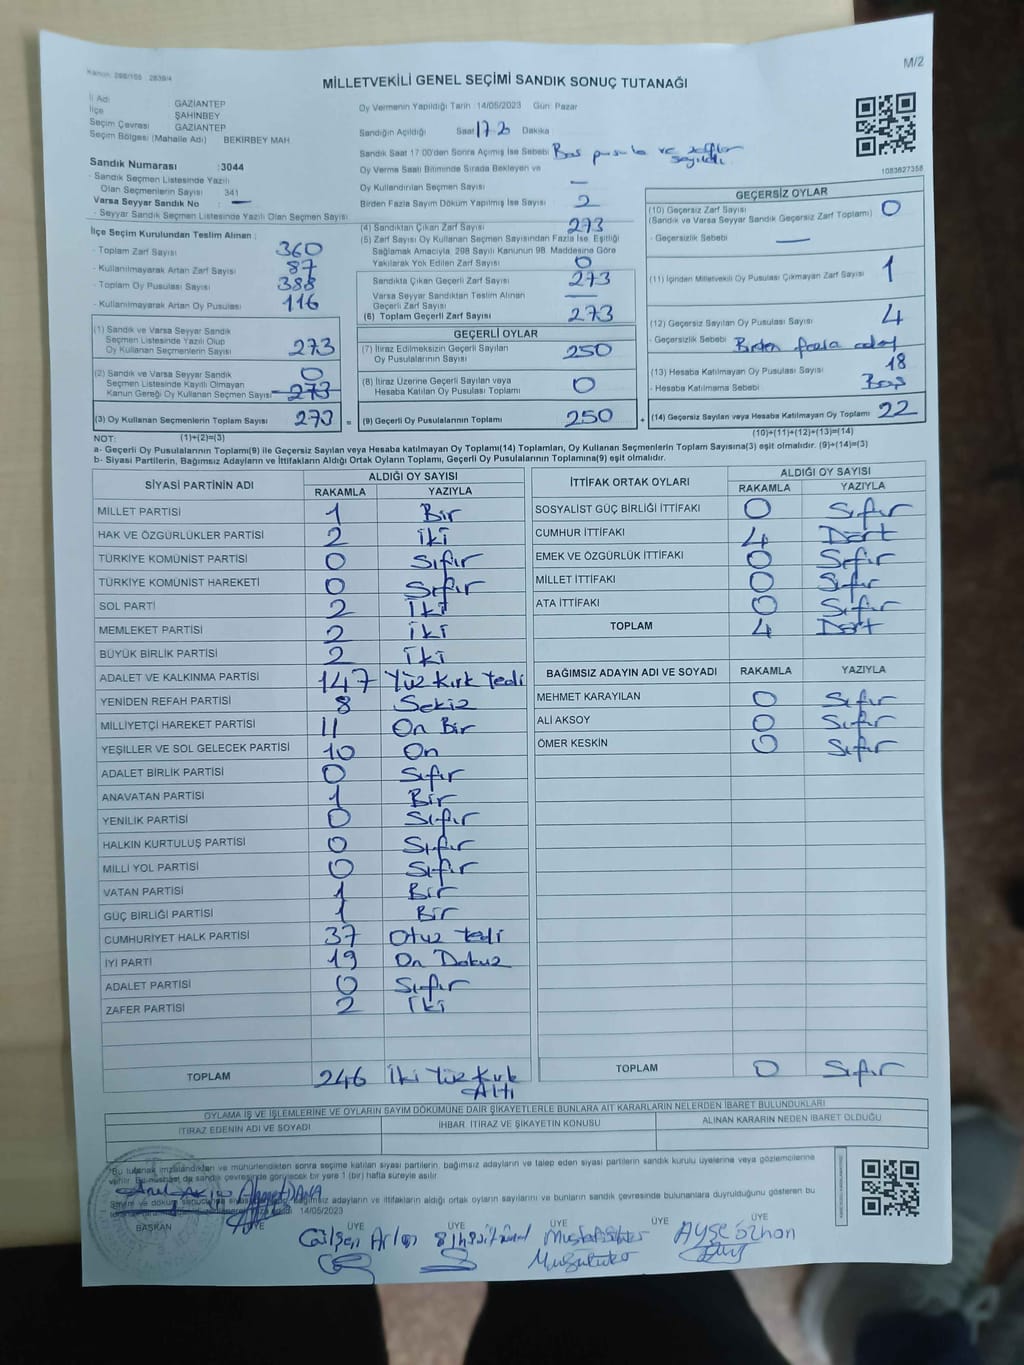 M/2
Kanun: 298/105 2839/4
MİLLETVEKİLİ GENEL SEÇİMİ SANDIK SONUÇ TUTANAĞI
İl Adı : GAZİANTEP
İlçe : ŞAHİNBEY
Seçim Çevresi : GAZİANTEP
Seçim Bölgesi (Mahalle Adı) : BEKİRBEY MAH
Sandık Numarası :3044
- Sandık Seçmen Listesinde Yazılı
Olan Seçmenlerin Sayısı 341
Varsa Seyyar Sandık No : —
- Seyyar Sandık Seçmen Listesinde Yazılı Olan Seçmen Sayısı
Oy Vermenin Yapıldığı Tarih 14/05/2023 Gün: Pazar
Sandığın Açıldığı Saat 17.20 Dakika
Sandık Saat 17:00'den Sonra Açımış İse Sebebi Boş pusula ve zarflar sayıldı.
Oy Verme Saati Bitiminde Sırada Bekleyen ve
Oy Kullandırılan Seçmen Sayısı —
Birden Fazla Sayım Döküm Yapılmış İse Sayısı 2
1083627358
İlçe Seçim Kurulundan Teslim Alınan :
- Toplam Zarf Sayısı 360
- Kullanılmayarak Artan Zarf Sayısı 87
- Toplam Oy Pusulası Sayısı 388
- Kullanılmayarak Artan Oy Pusulası 116
(1) Sandık ve Varsa Seyyar Sandık
Seçmen Listesinde Yazılı Olup
Oy Kullanan Seçmenlerin Sayısı 273
(2) Sandık ve Varsa Seyyar Sandık
Seçmen Listesinde Kayıtlı Olmayan
Kanun Gereği Oy Kullanan Seçmen Sayısı 0 273
(3) Oy Kullanan Seçmenlerin Toplam Sayısı 273 =
(4) Sandıktan Çıkan Zarf Sayısı 273
(5) Zarf Sayısı Oy Kullanan Seçmen Sayısından Fazla İse, Eşitliği
Sağlamak Amacıyla, 298 Sayılı Kanunun 98. Maddesine Göre
Yakılarak Yok Edilen Zarf Sayısı 0
Sandıkta Çıkan Geçerli Zarf Sayısı 273
Varsa Seyyar Sandıktan Teslim Alınan
Geçerli Zarf Sayısı —
(6) Toplam Geçerli Zarf Sayısı 273
GEÇERLİ OYLAR
(7) İtiraz Edilmeksizin Geçerli Sayılan
Oy Pusulalarının Sayısı 250
(8) İtiraz Üzerine Geçerli Sayılan veya
Hesaba Katılan Oy Pusulası Toplamı 0
(9) Geçerli Oy Pusulalarının Toplamı 250 +
GEÇERSİZ OYLAR
(10) Geçersiz Zarf Sayısı
(Sandık ve Varsa Seyyar Sandık Geçersiz Zarf Toplamı) 0
- Geçersizlik Sebebi —
(11) İçinden Milletvekili Oy Pusulası Çıkmayan Zarf Sayısı 1
(12) Geçersiz Sayılan Oy Pusulası Sayısı 4
- Geçersizlik Sebebi Birden fazla adet
(13) Hesaba Katılmayan Oy Pusulası Sayısı 18
- Hesaba Katılmama Sebebi Boş
(14) Geçersiz Sayılan veya Hesaba Katılmayan Oy Toplamı 22
(10)+(11)+(12)+(13)=(14)
NOT: (1)+(2)=(3)
a- Geçerli Oy Pusulalarının Toplamı(9) ile Geçersiz Sayılan veya Hesaba katılmayan Oy Toplamı(14) Toplamları, Oy Kullanan Seçmenlerin Toplam Sayısına(3) eşit olmalıdır. (9)+(14)=(3)
b- Siyasi Partilerin, Bağımsız Adayların ve İttifakların Aldığı Ortak Oyların Toplamı, Geçerli Oy Pusulalarının Toplamına(9) eşit olmalıdır.
SİYASİ PARTİNİN ADI ALDIĞI OY SAYISI
RAKAMLA YAZIYLA
MİLLET PARTİSİ 1 Bir
HAK VE ÖZGÜRLÜKLER PARTİSİ 2 iki
TÜRKİYE KOMÜNİST PARTİSİ 0 Sıfır
TÜRKİYE KOMÜNİST HAREKETİ 0 Sıfır
SOL PARTİ 2 iki
MEMLEKET PARTİSİ 2 iki
BÜYÜK BİRLİK PARTİSİ 2 iki
ADALET VE KALKINMA PARTİSİ 147 Yüz Kırk Yedi
YENİDEN REFAH PARTİSİ 8 Sekiz
MİLLİYETÇİ HAREKET PARTİSİ 11 On Bir
YEŞİLLER VE SOL GELECEK PARTİSİ 10 On
ADALET BİRLİK PARTİSİ 0 Sıfır
ANAVATAN PARTİSİ 1 Bir
YENİLİK PARTİSİ 0 Sıfır
HALKIN KURTULUŞ PARTİSİ 0 Sıfır
MİLLİ YOL PARTİSİ 0 Sıfır
VATAN PARTİSİ 1 Bir
GÜÇ BİRLİĞİ PARTİSİ 1 Bir
CUMHURİYET HALK PARTİSİ 37 Otuz Yedi
İYİ PARTİ 19 On Dokuz
ADALET PARTİSİ 0 Sıfır
ZAFER PARTİSİ 2 iki
TOPLAM 246 İki Yüz Kırk Altı
İTTİFAK ORTAK OYLARI ALDIĞI OY SAYISI
RAKAMLA YAZIYLA
SOSYALİST GÜÇ BİRLİĞİ İTTİFAKI 0 Sıfır
CUMHUR İTTİFAKI 4 Dört
EMEK VE ÖZGÜRLÜK İTTİFAKI 0 Sıfır
MİLLET İTTİFAKI 0 Sıfır
ATA İTTİFAKI 0 Sıfır
TOPLAM 4 Dört
BAĞIMSIZ ADAYIN ADI VE SOYADI RAKAMLA YAZIYLA
MEHMET KARAYILAN 0 Sıfır
ALİ AKSOY 0 Sıfır
ÖMER KESKİN 0 Sıfır
TOPLAM 0 Sıfır
OYLAMA İŞ VE İŞLEMLERİNE VE OYLARIN SAYIM DÖKÜMÜNE DAİR ŞİKAYETLERLE BUNLARA AİT KARARLARIN NELERDEN İBARET BULUNDUKLARI
İTİRAZ EDENİN ADI VE SOYADI İHBAR İTİRAZ VE ŞİKAYETİN KONUSU ALINAN KARARIN NEDEN İBARET OLDUĞU
"Bu tutanak imzalandıktan ve mühürlendikten sonra seçime katılan siyasi partilerin, bağımsız adayların ve talep eden siyasi partilerin sandık kurulu üyelerine veya gözlemcilerine
verilir. Bu nüshası da sandık çevresinde görülecek bir yere 1 (bir) hafta süreyle asılır.
bağımsız adayların ve ittifakların aldığı ortak oyların sayılarını ve bunların sandık çevresinde bulunanlara duyrulduğunu gösteren bu
14/05/2023
Ahmet DANA
BAŞKAN ÜYE ÜYE ÜYE ÜYE ÜYE ÜYE
Gülşen Arlan Ayşe özhan